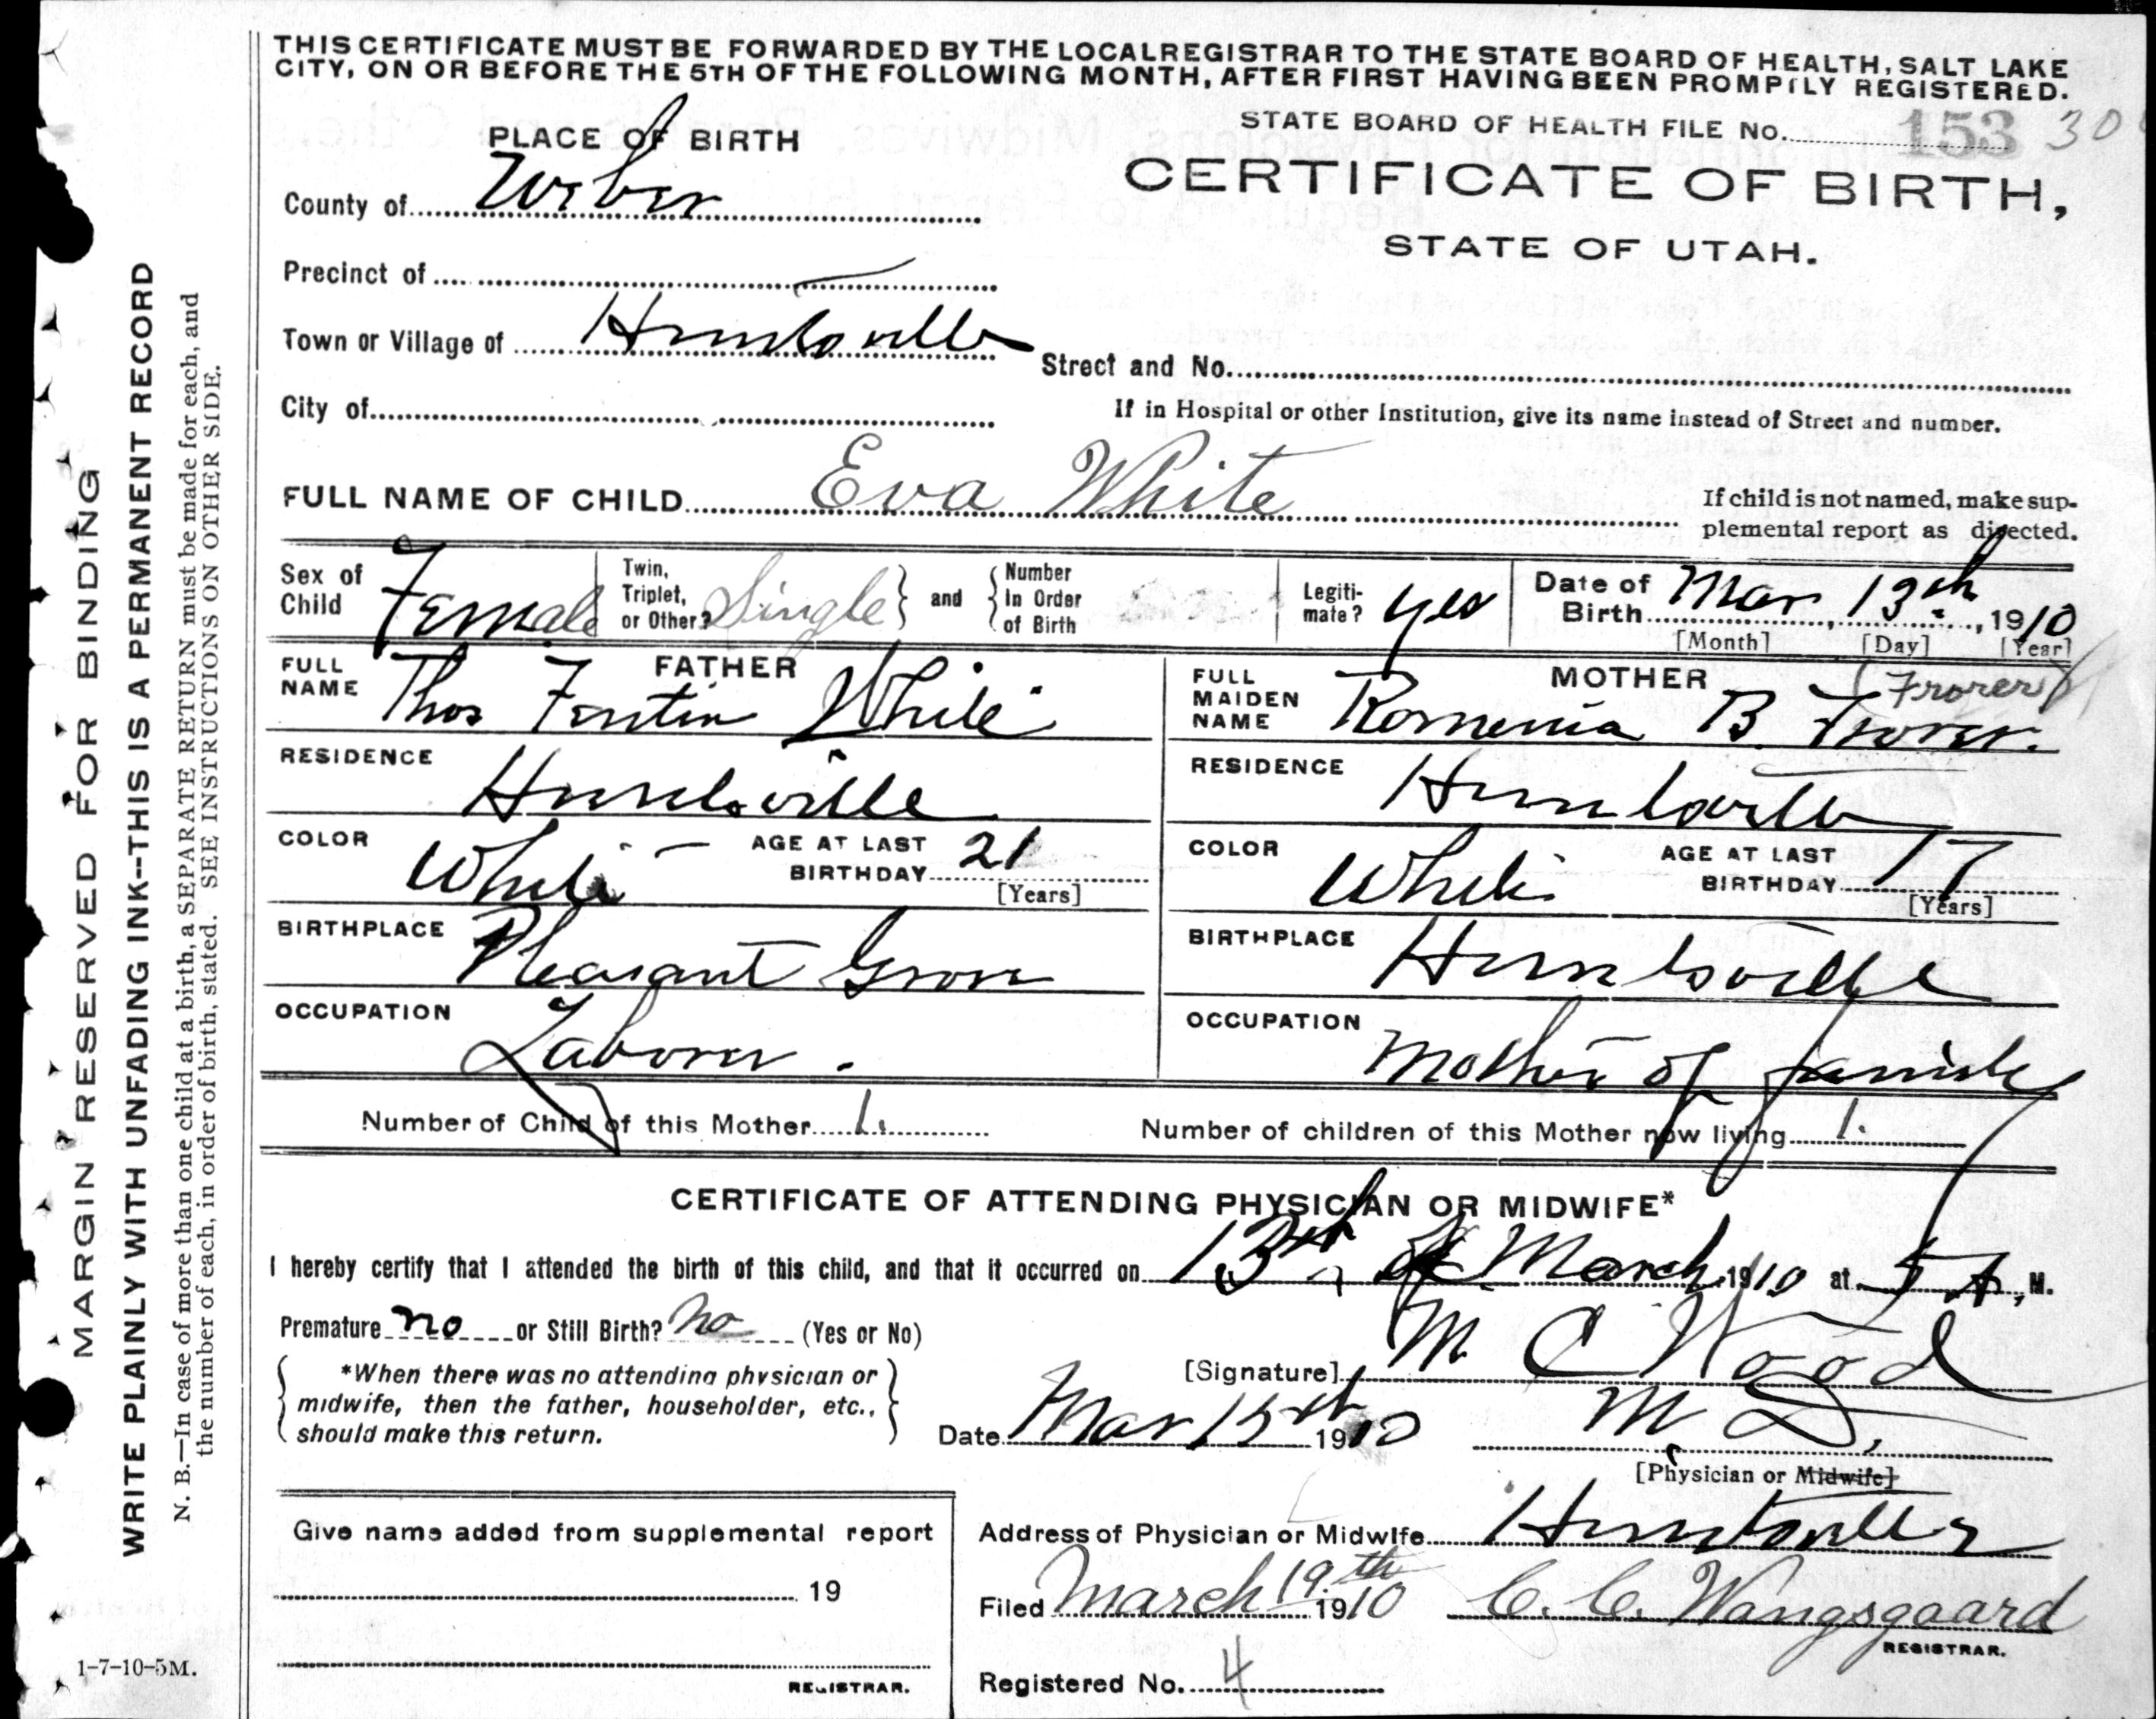 THIS CERTIFICATE MUST BE FORWARDED BY THE LOCAL REGISTRAR TO THE STATE BOARD OF HEALTH, SALT LAKE
CITY, ON OR BEFORE THE 5TH OF THE FOLLOWING MONTH, AFTER FIRST HAVING BEEN PROMPTLY REGISTERED.
STATE BOARD OF HEALTH FILE No. 153 30
PLACE OF BIRTH
CERTIFICATE OF BIRTH,
STATE OF UTAH.
County of Weber
Precinct of
Town or Village of Huntsville
Street and No.
City of
If in Hospital or other Institution, give its name instead of Street and number.
FULL NAME OF CHILD Eva White
If child is not named, make sup-
plemental report as directed.
Sex of Child Female
Twin, Triplet, or Other? Single and Number In Order of Birth
Legiti-mate? yes
Date of Birth Mar 13th, 1910
[Month] [Day] [Year]
FATHER
FULL NAME Thos White
RESIDENCE Huntsville
COLOR White AGE AT LAST BIRTHDAY 21
[Years]
BIRTHPLACE Pleasant Grove
OCCUPATION Laborer.
MOTHER (Frorer)
FULL MAIDEN NAME Romenia B. Frorer.
RESIDENCE Huntsville
COLOR White AGE AT LAST BIRTHDAY 17
[Years]
BIRTHPLACE Huntsville
OCCUPATION Mother of family
Number of Child of this Mother 1.
Number of children of this Mother now living 1.
CERTIFICATE OF ATTENDING PHYSICIAN OR MIDWIFE*
I hereby certify that I attended the birth of this child, and that it occurred on 13th of March 1910 at 5 A, M.
Premature no or Still Birth? no (Yes or No)
*When there was no attending physician or
midwife, then the father, householder, etc.,
should make this return.
[Signature] M C Wood
Date Mar 15th 1910 M D,
[Physician or Midwife]
Give name added from supplemental report
19
REGISTRAR.
Address of Physician or Midwife Huntsville
Filed March 19th 1910 C. C. Wangsgaard
REGISTRAR.
Registered No. 4
MARGIN RESERVED FOR BINDING
WRITE PLAINLY WITH UNFADING INK--THIS IS A PERMANENT RECORD
N. B.—In case of more than one child at a birth, a SEPARATE RETURN must be made for each, and
the number of each, in order of birth, stated. SEE INSTRUCTIONS ON OTHER SIDE.
1-7-10-5M.